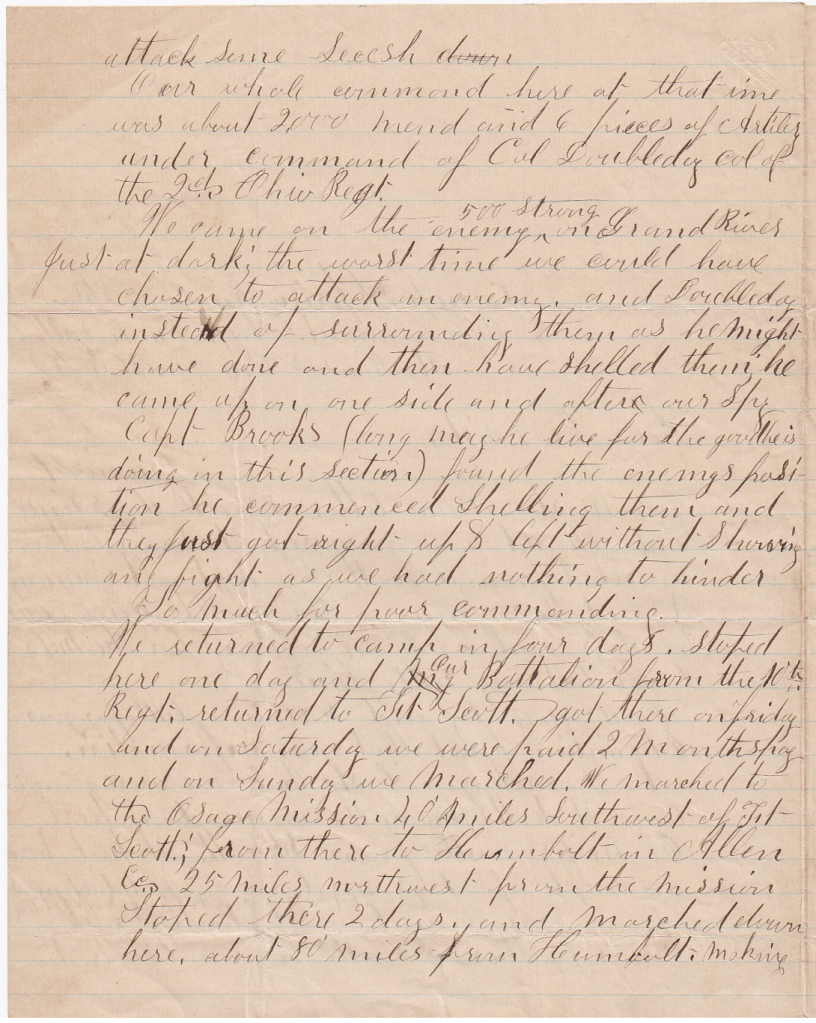 attack some Secesh down
Our whole command here at that ime
was about 2,000 mend and 6 pieces of Artilery
under command of Col Doubleday col of
the 2d Ohio Regt.
500 strong
We came on the enemy, ^ on Grand River
Just at dark; the worst time we could have
chosen to attack an enemy. and Doubleday
instead of surrounding them as he might
have done and then have shelled them; he
came up on one side and after our Spy
Capt Brooks (long may he live for the good he is
doing in this section) found the enemys posi-
tion he commenced shelling them and
they just got right up & left without showing
any fight as we had nothing to hinder
So much for poor commanding.
We returned to camp in four days. stoped
here one day and my Our Battalion from the 10th
Regt. returned to Ft Scott. got there on friday
and on Saturday we were paid 2 Months pay
and on Sunday we Marched. We marched to
the Osage Mission 40 miles Southwest of Ft
Scott; from there to Humbolt in Allen
Co. 25 miles northwest from the Mission
Stoped there 2 days, and marched down
here. about 80 miles from Humbolt. making